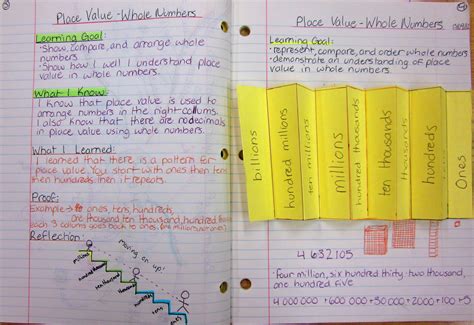 Place Value - Whole Numbers
Learning Goal:
• Show, compare, and arrange whole
numbers
• Show how well I understand place
value in whole numbers.
What I Know:
I know that place value is used to
arrange numbers in the right colums.
I also know that there are no decimals
in place value using whole numbers.
What I Learned:
I learned that there is a pattern for
place value. You start with ones then tens
then hundreds then it repeats.
Proof:
Example → ones, tens, hundreds,
one thousand, ten thousand, hundred
each 3 colums goes back to ones
Reflection:
moving on up!
millions
thousands
hundreds
tens
ones
Place Value - Whole Numbers
Learning Goal:
• represent, compare, and order whole numbers
• demonstrate an understanding of place
value in whole numbers.
billions
hundred millions
ten millions
millions
hundred thousands
ten thousands
thousands
hundreds
Ones
4 632 105
• four million, six hundred thirty two thousand,
one hundred five
4 000 000 + 600 000 + 30 000 + 2000 + 100 + 5